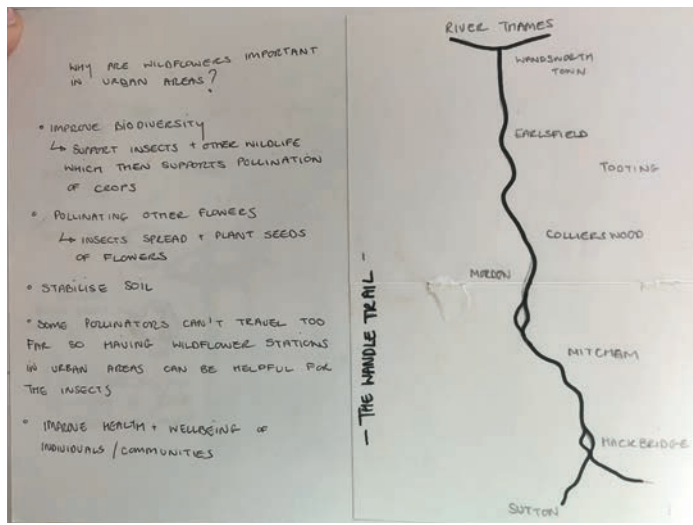 WHY ARE WILDFLOWERS IMPORTANT
IN URBAN AREAS?
• IMPROVE BIODIVERSITY
↳ SUPPORT INSECTS + OTHER WILDLIFE
WHICH THEN SUPPORTS POLLINATION
OF CROPS
• POLLINATING OTHER FLOWERS
↳ INSECTS SPREAD + PLANT SEEDS
OF FLOWERS
• STABILISE SOIL
• SOME POLLINATORS CAN'T TRAVEL TOO
FAR SO HAVING WILDFLOWER STATIONS
IN URBAN AREAS CAN BE HELPFUL FOR
THE INSECTS
• IMPROVE HEALTH + WELLBEING OF
INDIVIDUALS / COMMUNITIES
- THE WANDLE TRAIL -
RIVER THAMES
WANDSWORTH
TOWN
EARLSFIELD
TOOTING
COLLIERSWOOD
MORDEN
MITCHAM
HACKBRIDGE
SUTTON